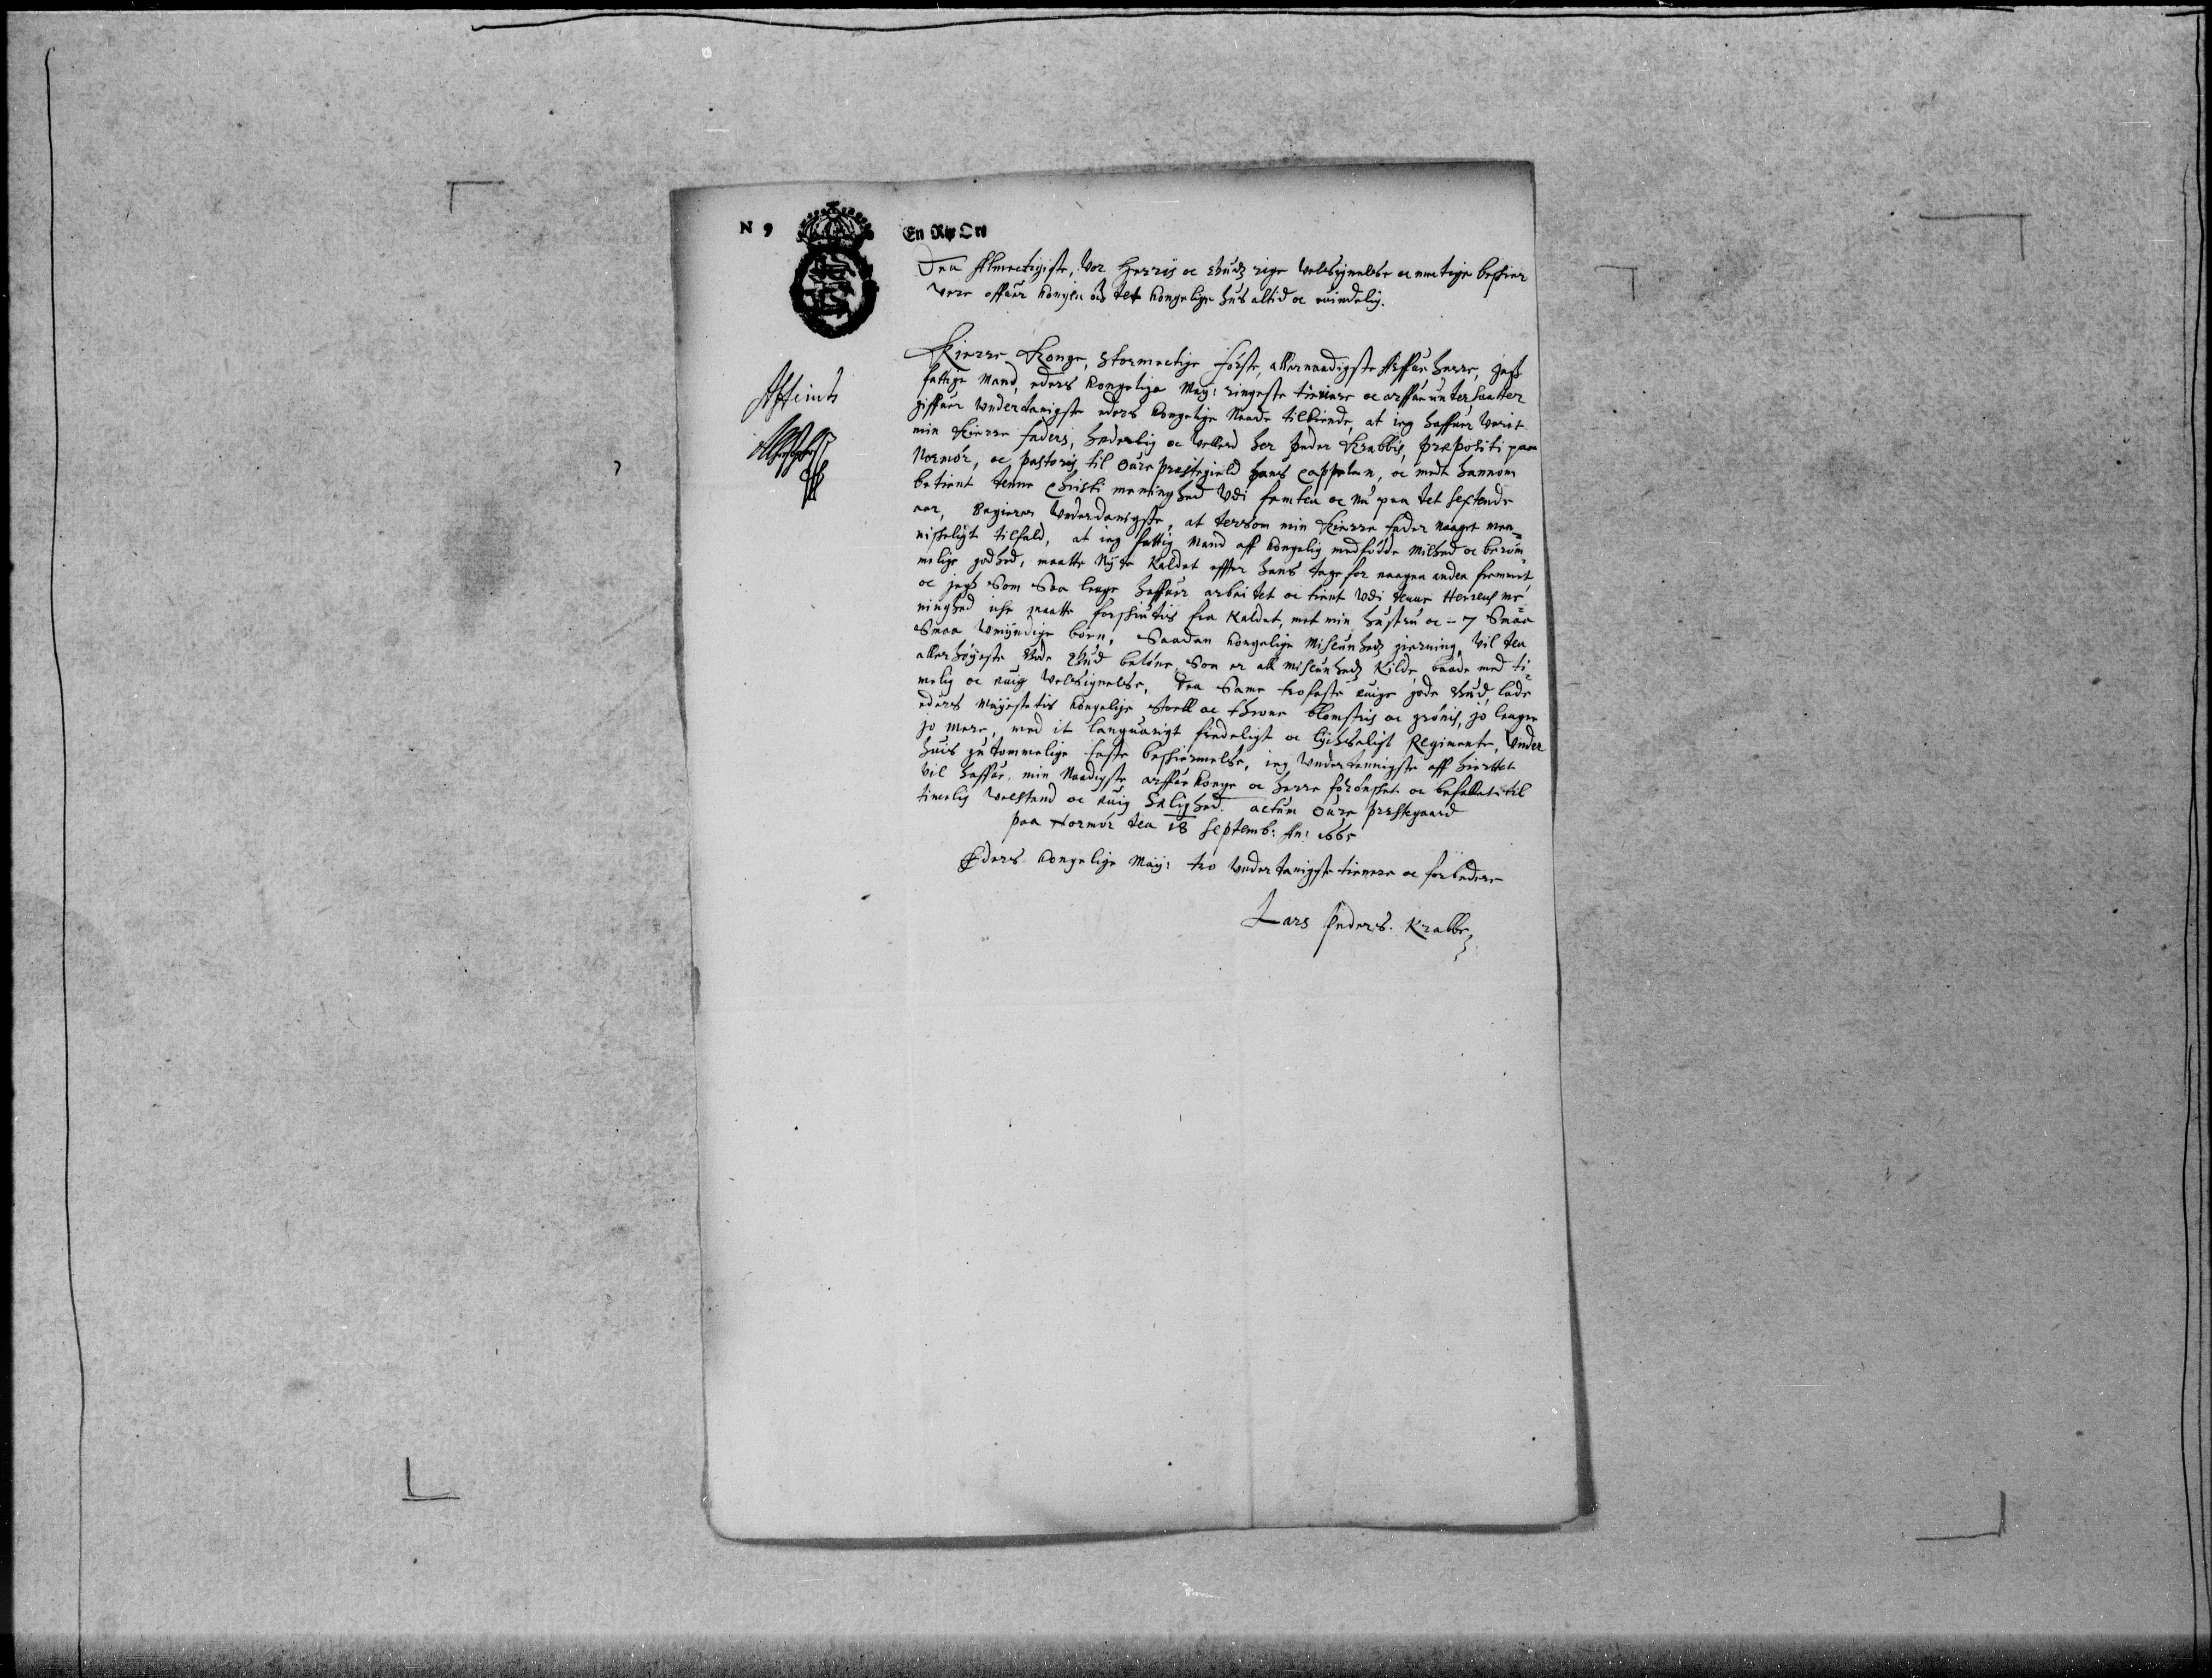 N 9
En Rix Ort
Den Almectigiste, Vor Herris oc Guds rige Velsignelse oc mectige beskier
vere offuer kongen oc det kongelige hus altid oc euindelig.
Kierre Konge, stormectige første, allernaadigste Arffue herre, jegh
fattige Mand, eders kongelige May: ringeste tienere oc arffue untersaatter
giffuer Underdanigste eders kongelige Naade tilkiende, at ieg haffuer verit
min kierre faders, hederlig oc vellerd her Peder Krabbis, præpositi paa
Normör, oc pastoris til Öure prestegield hans Cappelan, oc medt hannom
betient denne Christi menninghed Udi femten oc nu paa det sextende
aar, Begierer Underdanigste, at dersom min kierre fader naaget men-
niskeligt tilfald, at ieg fattig Mand aff kongelig medfödde Milhed oc beröm-
melige godhed, maatte Nyde Kaldet effter hans dage for naagen anden fremmet
oc jegh som saa lenge haffuer arbeitet oc tient Udi denne Herrens me-
ninghed iche maatte forskiudis fra Kaldet, met min hustru oc - 7 Smaa
Smaa Umyndige børn, Saadan kongelige Miscunheds gierning, vil den
allerhöyeste Gode Gud belöne, Som er all miscunheds Kilde, baade med ti-
melig oc euig Velsignelse, Den Samme trofaste euige gode Gud, lade
eders Mayestetis kongelige stoell oc throne blomstris oc grönis, jo lenger
jo mere, med it languarigt fredeligt oc lychsaligt Regimente, Under
huis gudommelige faste beskiermelse, ieg Underdannigste aff hiertet
vil haffue min Naadigste arffue konge oc herre forönsket oc befallet til
timelig Velstand oc euig Salighed. actum Öure prestegaard
paa Normör den 18 Septemb: An: 1665
Eders kongelige May: tro Underdanigste tienere oc forbedere
Lars Peders. Krabbe